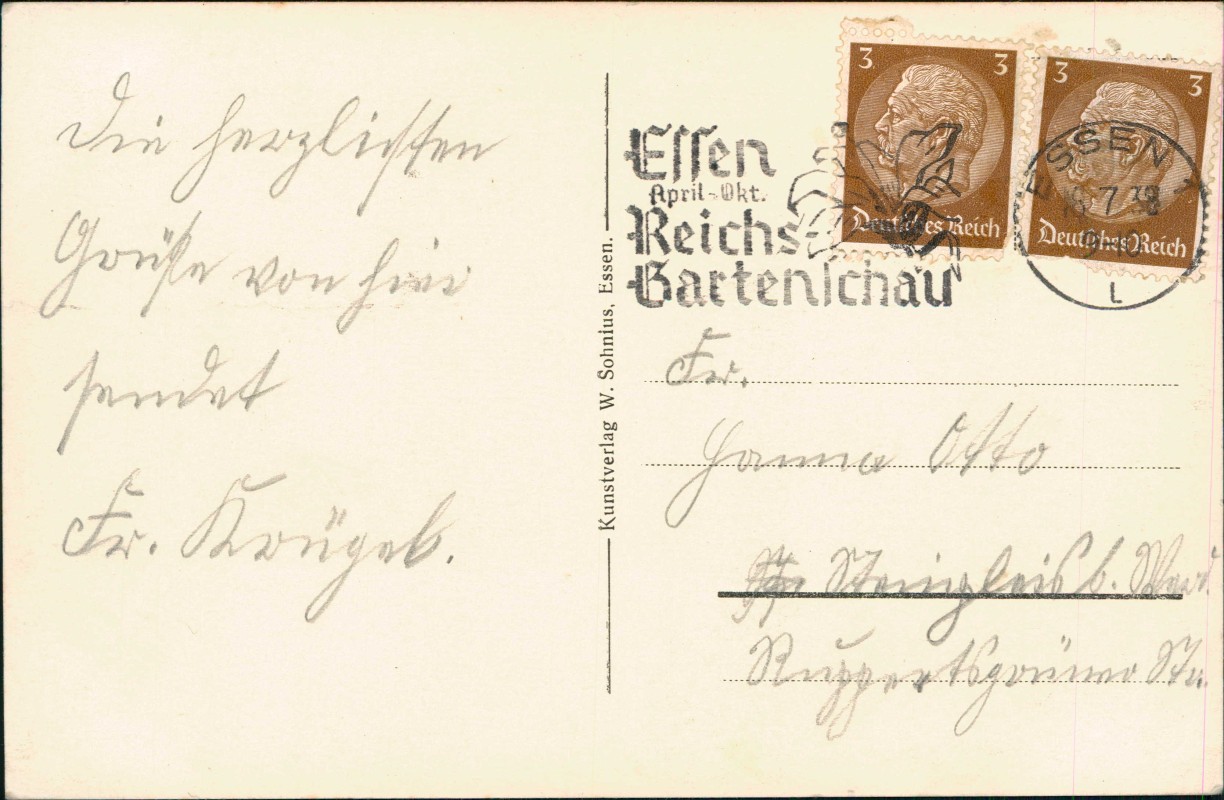 Die herzlichsten
Grüße von hier
sendet
Fr. Krügel.
Kunstverlag W. Sohnius, Essen.
Essen
April-Okt.
Reichs-
Gartenschau
3 3
Deutsches Reich
3 3
Deutsches Reich
ESSEN 1
7 38
L
Fr.
Hanna Otto
Steinpleis b. Werd.
Ruppertsgrüner Str.